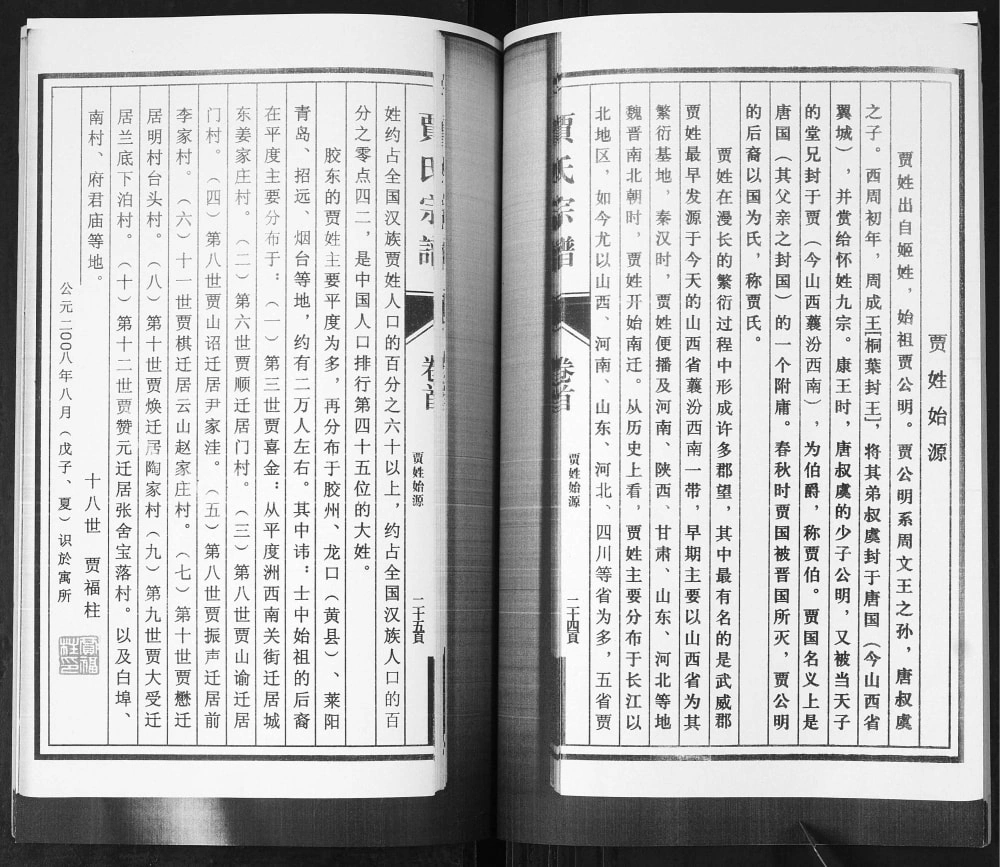 贾姓始源
贾姓出自姬姓，始祖贾公明。贾公明系周文王之孙，唐叔虞
之子。西周初年，周成王[桐葉封王]，将其弟叔虞封于唐国（今山西省
翼城），并赏给怀姓九宗。康王时，唐叔虞的少子公明，又被当天子
的堂兄封于贾（今山西襄汾西南），为伯爵，称贾伯。贾国名义上是
唐国（其父亲之封国）的一个附庸。春秋时贾国被晋国所灭，贾公明
的后裔以国为氏，称贾氏。
贾姓在漫长的繁衍过程中形成许多郡望，其中最有名的是武威郡
贾姓最早发源于今天的山西省襄汾西南一带，早期主要以山西省为其
繁衍基地，秦汉时，贾姓便播及河南、陕西、甘肃、山东、河北等地
魏晋南北朝时，贾姓开始南迁。从历史上看，贾姓主要分布于长江以
北地区，如今尤以山西、河南、山东、河北、四川等省为多，五省贾
賈氏宗譜
卷首
贾姓始源
二十四頁
賈氏宗譜
卷首
贾姓始源
二十五頁
姓约占全国汉族贾姓人口的百分之六十以上，约占全国汉族人口的百
分之零点四二，是中国人口排行第四十五位的大姓。
胶东的贾姓主要平度为多，再分布于胶州、龙口（黄县）、莱阳
青岛、招远、烟台等地，约有二万人左右。其中讳：士中始祖的后裔
在平度主要分布于：（一）第三世贾喜金：从平度洲西南关街迁居城
东姜家庄村。（二）第六世贾顺迁居门村。（三）第八世贾山谕迁居
门村。（四）第八世贾山诏迁居尹家洼。（五）第八世贾振声迁居前
李家村。（六）十一世贾棋迁居云山赵家庄村。（七）第十世贾懋迁
居明村台头村。（八）第十世贾焕迁居陶家村（九）第九世贾大受迁
居兰底下泊村。（十）第十二世贾赞元迁居张舍宝落村。以及白埠、
南村、府君庙等地。
十八世 贾福柱
公元二00八年八月（戊子、夏）识於寓所
賈福柱印